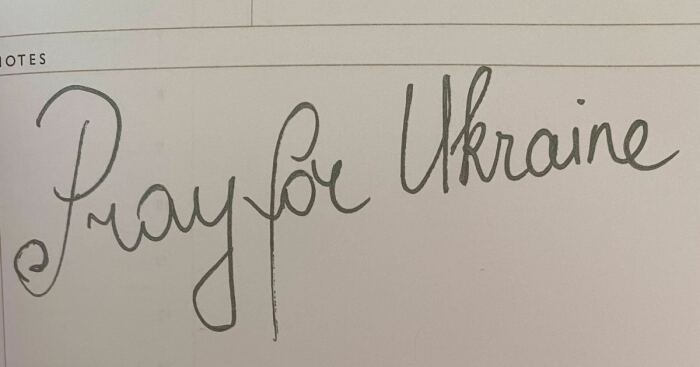 NOTES
Pray for Ukraine